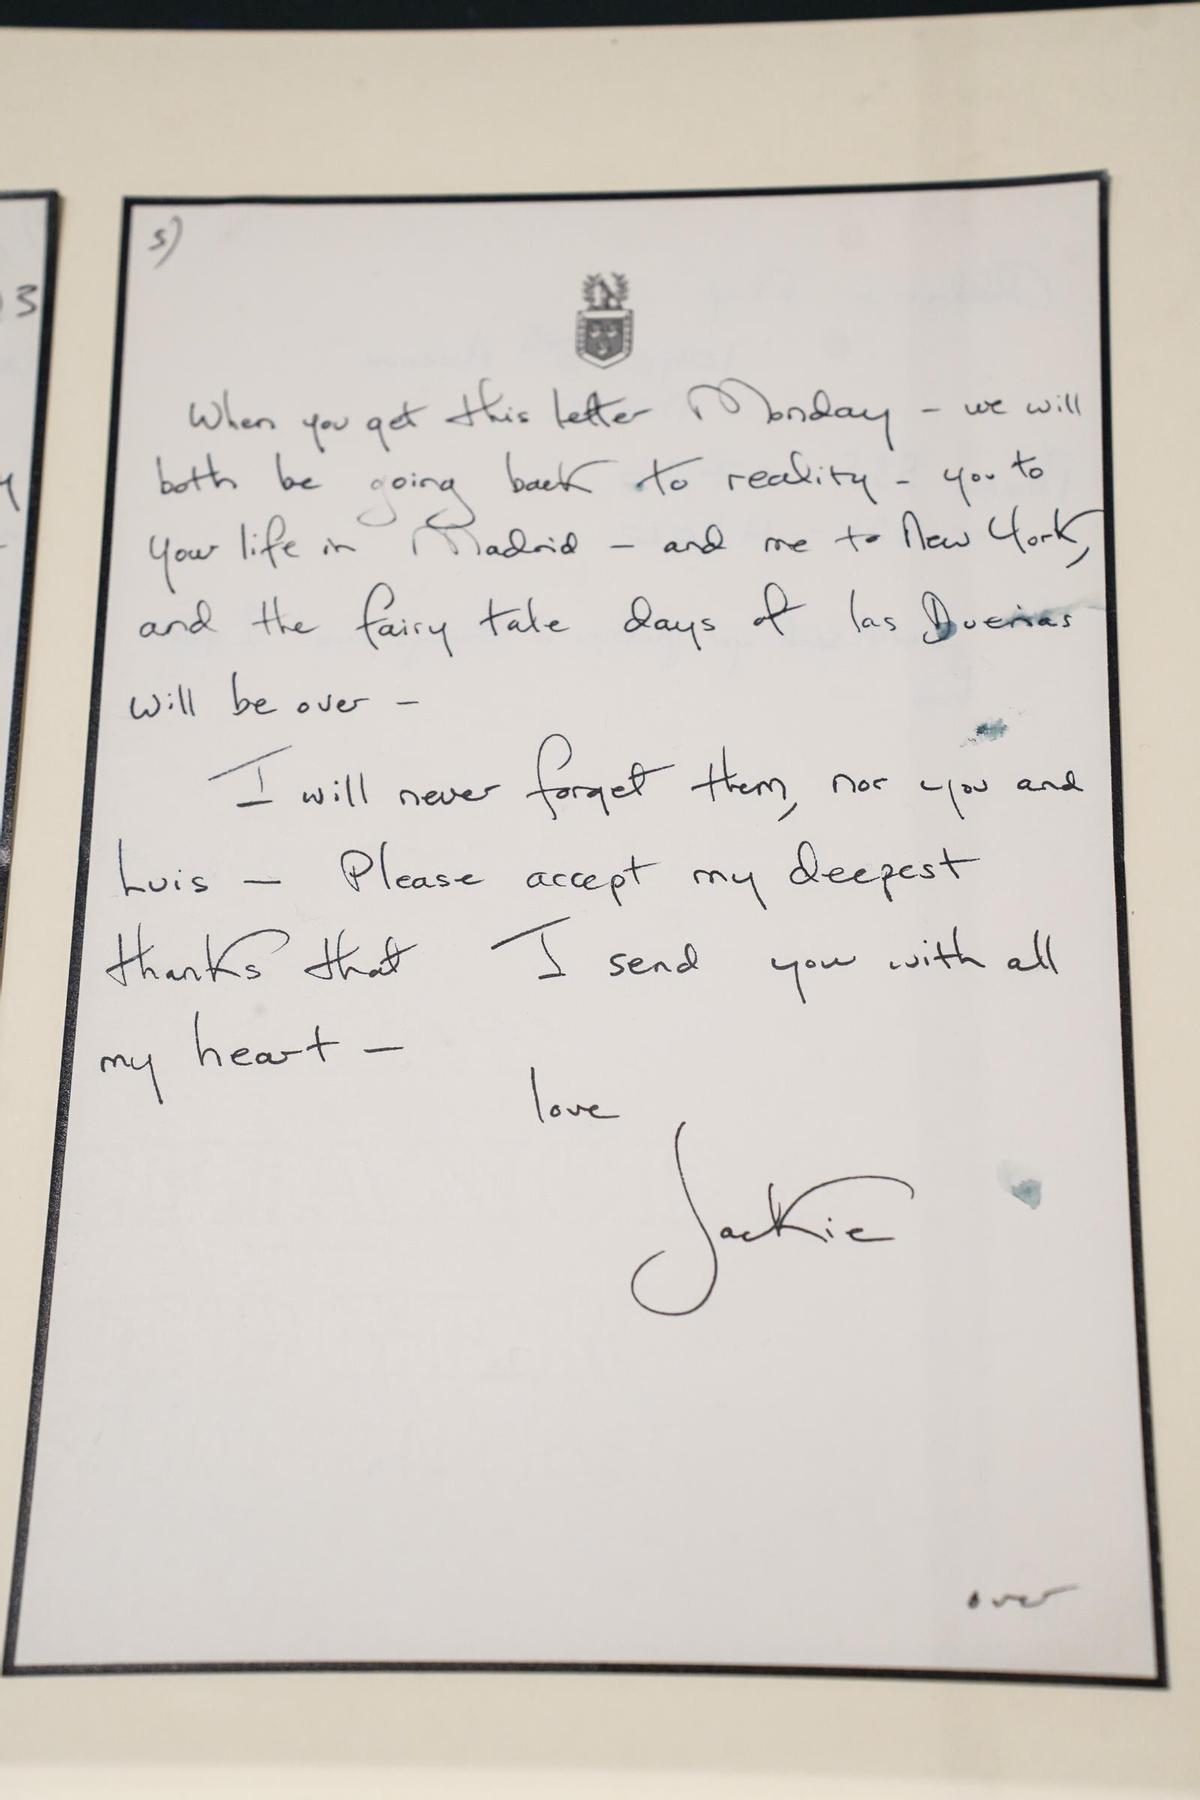 5)
3
When you get this letter Monday – we will
both be going back to reality – you to
your life in Madrid – and me to New York,
and the fairy tale days of las Duenas
will be over –
I will never forget them, nor you and
Luis – Please accept my deepest
thanks that I send you with all
my heart –
love
Jackie
over